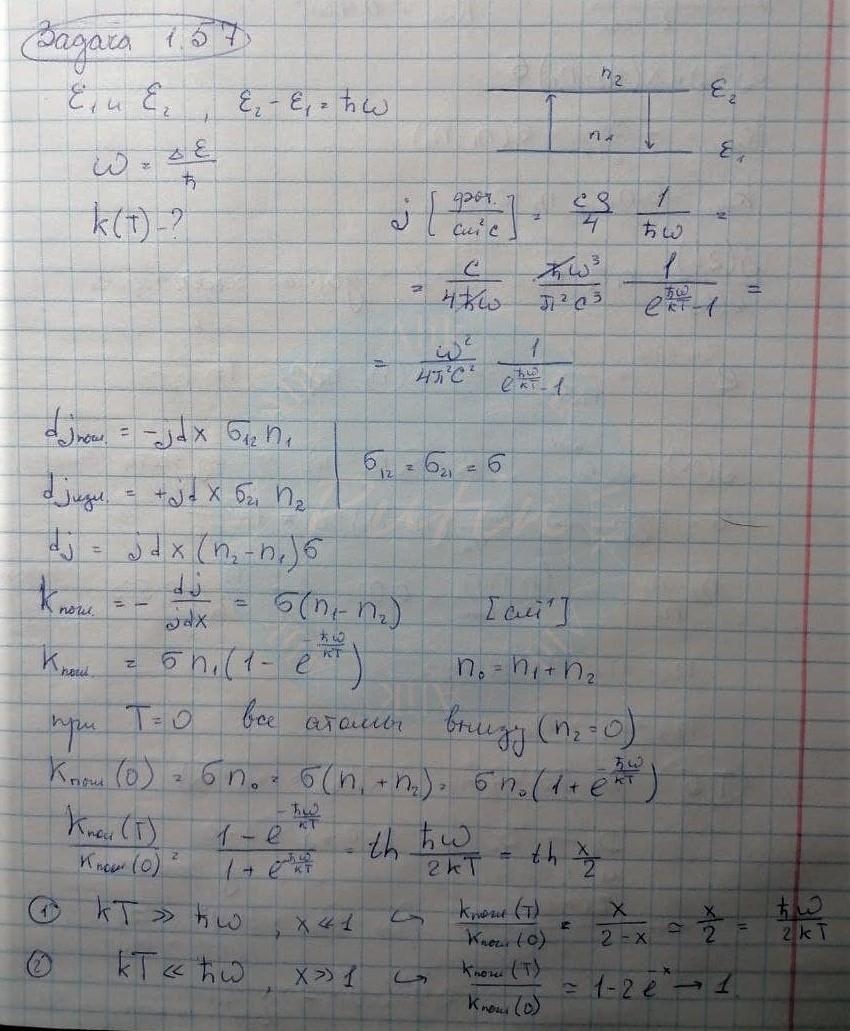 Задача 1.57
ε₁ и ε₂ , ε₂ - ε₁ = ħω
n₂ ε₂
n₁ ε₁
ω = Δε/ħ
k(T) - ?
j [фот./см²с] = cρ/4 1/ħω =
= c/4ħω ħω³/π²c³ 1/(e^(ħω/kT) - 1) =
= ω²/4π²c² 1/(e^(ħω/kT) - 1)
dj погл. = -jdx σ₁₂ n₁
σ₁₂ = σ₂₁ = σ
dj изл. = +jdx σ₂₁ n₂
dj = jdx (n₂ - n₁)σ
k погл. = - dj/jdx = σ(n₁ - n₂) [см⁻¹]
k погл. = σn₁(1 - e^(-ħω/kT)) n₀ = n₁ + n₂
при T=0 все атомы внизу (n₂ = 0)
k погл (0) = σn₀ = σ(n₁ + n₂) = σn₀(1 + e^(-ħω/kT))
k погл (T)/k погл (0) = (1 - e^(-ħω/kT))/(1 + e^(-ħω/kT)) = th ħω/2kT = th x/2
① kT ≫ ħω , x ≪ 1 ↪ k погл (T)/k погл (0) = x/(2-x) ≃ x/2 = ħω/2kT
② kT ≪ ħω , x ≫ 1 ↪ k погл (T)/k погл (0) = 1 - 2e^(-x) → 1